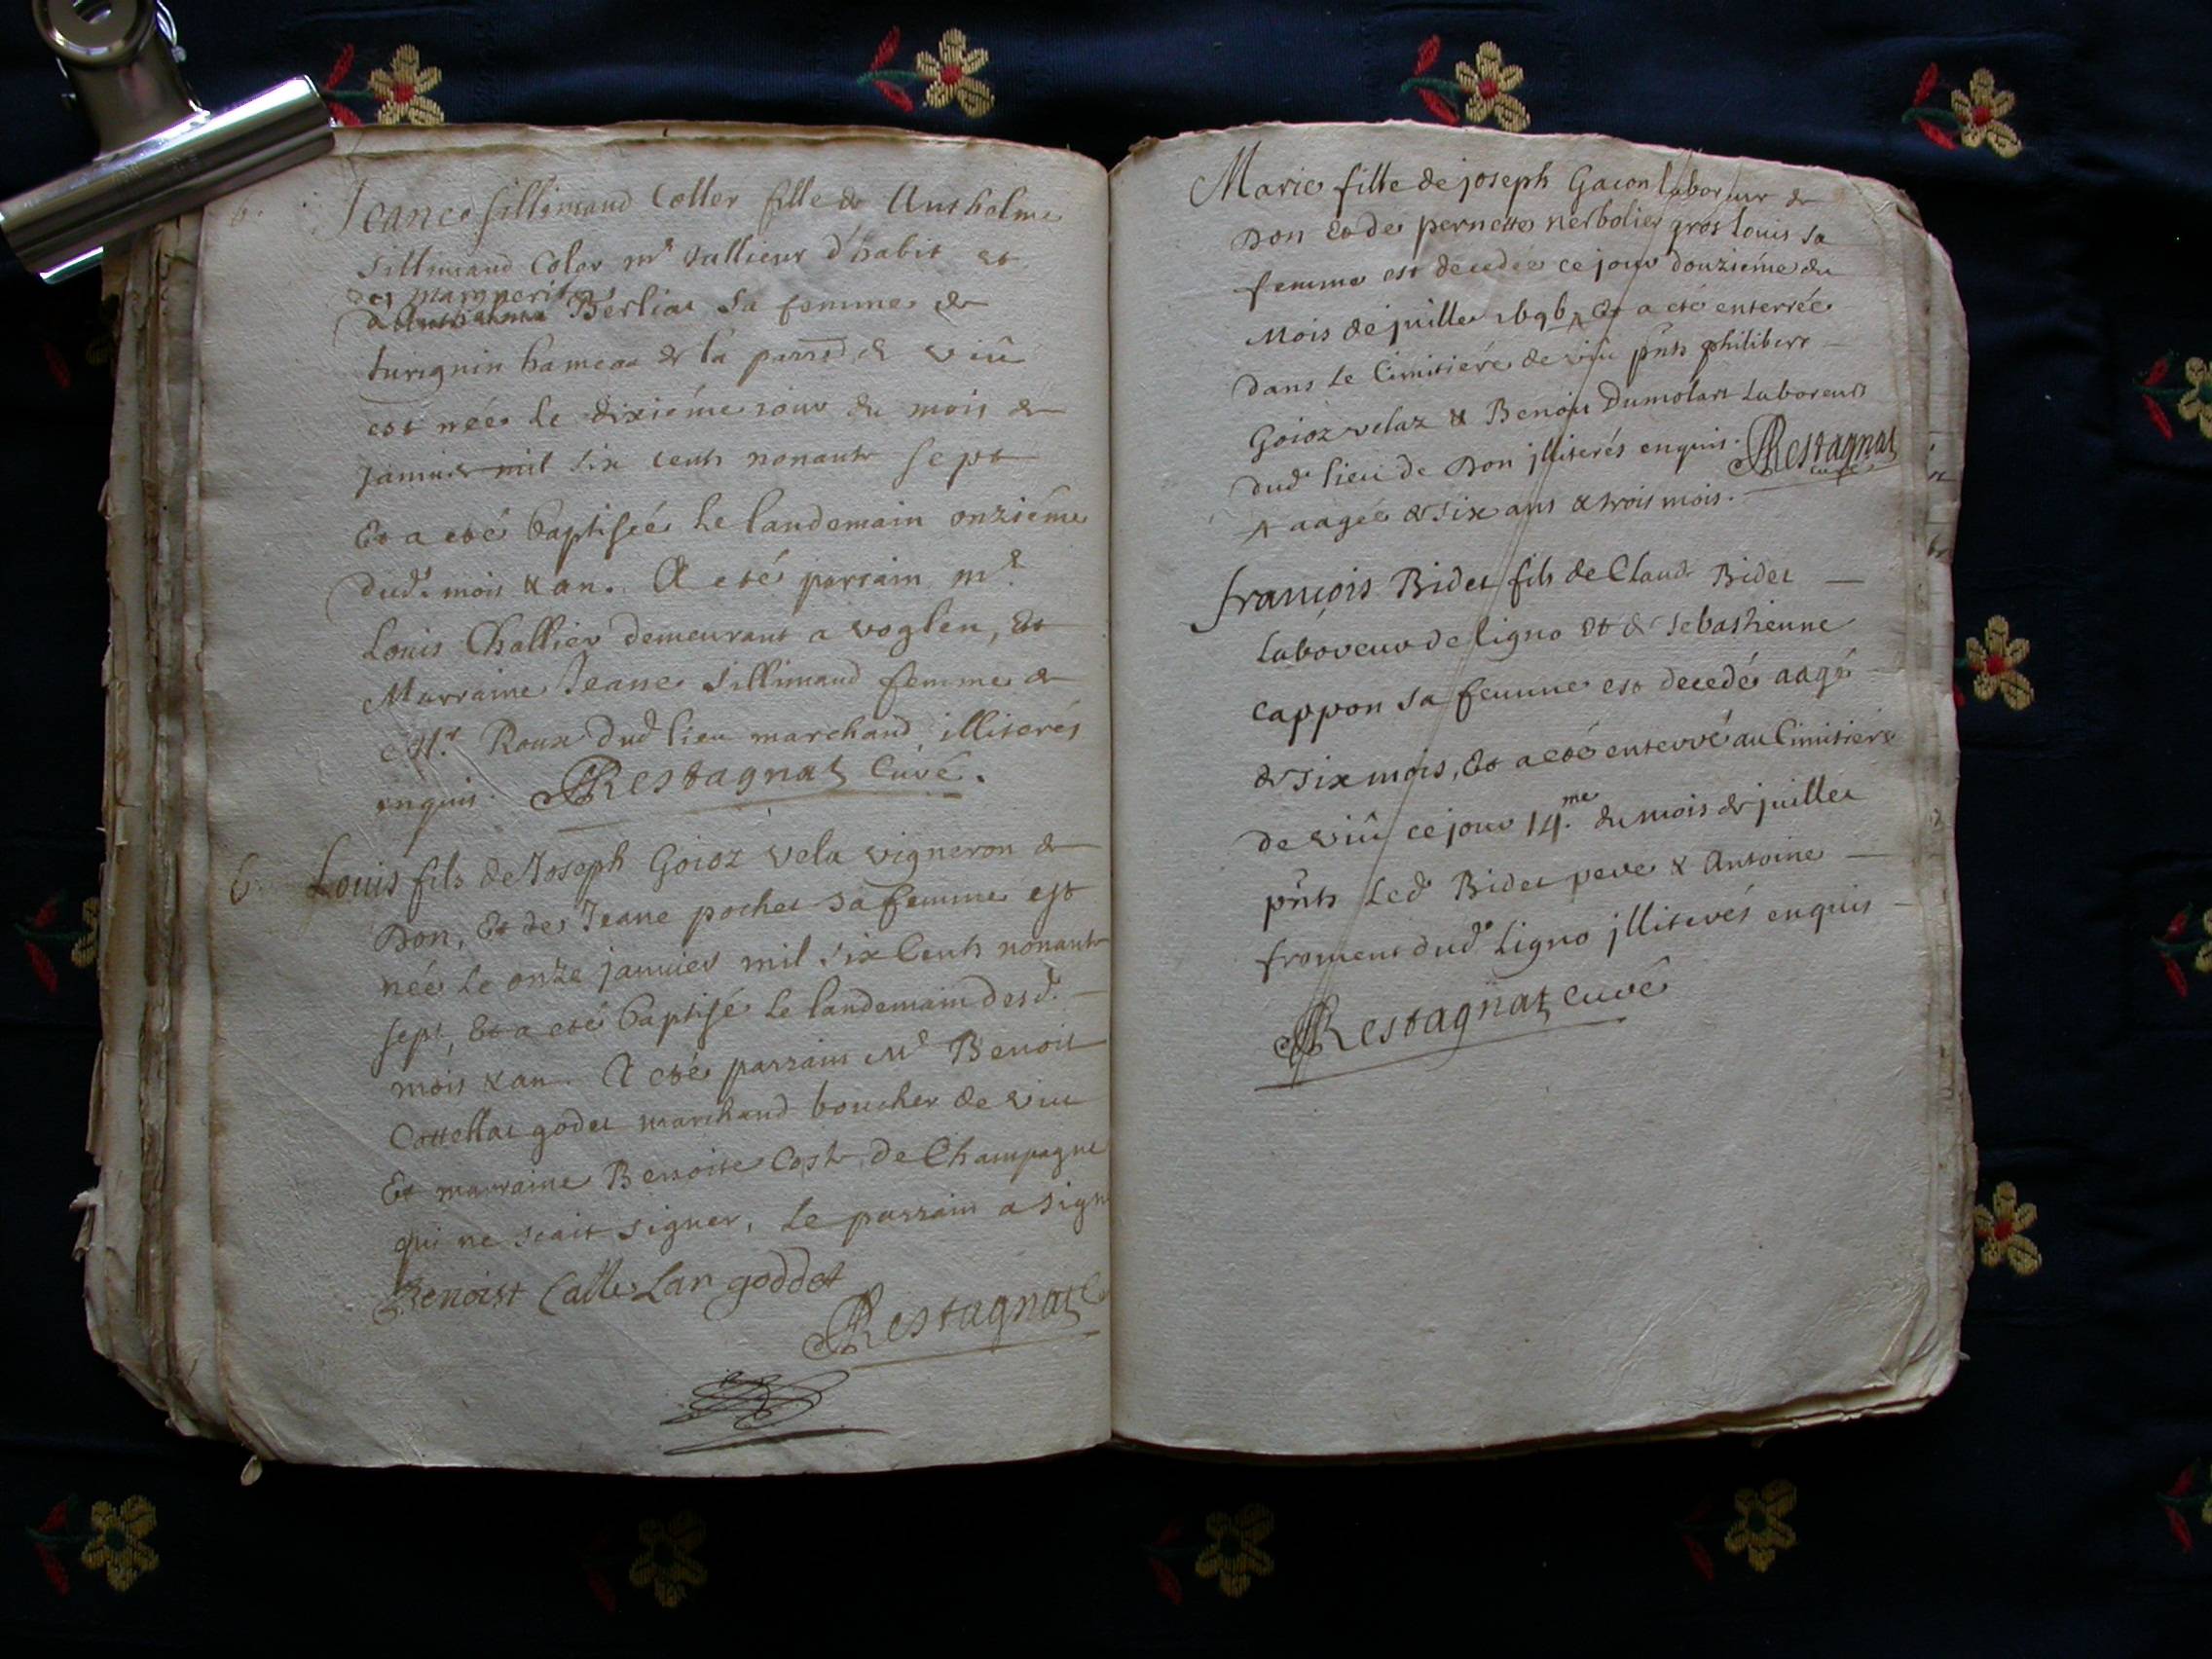 b.
Jeane sillimand Coller fille de Anthelme
Sillimand Coler m.e tallieur d'habit et
de pamperite
Berliat sa femme de
turignin hameau de la parr.d de viû
est née le dixiéme jour du mois de
Janvier mil six cents nonante sept
Et a eté baptisée le landemain onziéme
dud. mois & an. A eté parrain m.e
Louis Challier demeurant a voglen, Et
Marraine Jeane sillimand femme de
Roux dud lieu marchand illiterés
enquis. Restagnat Curé.
b.
Louis fils de Joseph Goioz vela vigneron de
Don, Et de Jeane pochet sa femme est
née le onze janvier mil six Cents nonante
sept, Et a eté baptisé le landemain desd.
mois & an. A eté parrain M.e Benoit
Cattellat godet marchand boucher de viu
Et marraine Benoite Coste de Champagne
qui ne scait signer, Le parrain a signé
Benoist Catte Lan goddet
Restagnat
Marie fille de joseph Gacon laboreur de
Don Et de pernette nerbolier gros louis sa
femme est decedée ce jour douziéme du
Mois de juillet 1696 ^ Et a eté enterrée
dans Le Cimitiére de viû pnts philibert
Goioz velaz & Benoit Dumolart Laboreurs
dud lieu de Don jlliterés enquis. Restagnat
curé
^ aageé de six ans & trois mois.
françois Bidet fils de Claude Bidet
Laboureur de ligno Et de sebastienne
cappon sa femme est decedé aagé
de six mois, Et a eté enterré au Cimitiére
de viû ce jour 14.me du mois de juillet
pnts Led Bidet pere & Antoine
froment dud. Ligno jlliterés enquis
Restagnat Curé